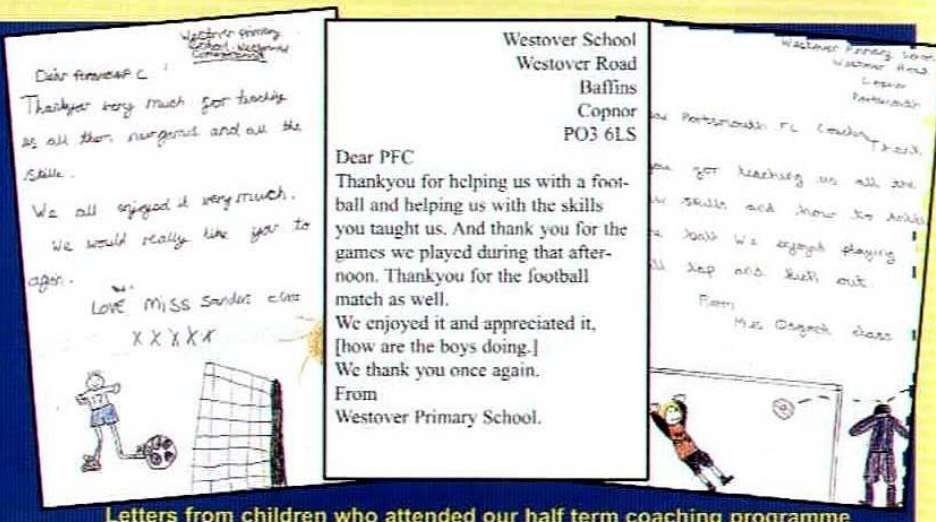 Westover primary
School
Dear
Thankyou very much for teaching
us all them new games and all the
Skills.
We all enjoyed it very much.
We would really like you to
again.
LOVE MISS Sanders class
X X X X X
Westover School
Westover Road
Baffins
Copnor
PO3 6LS
Dear PFC
Thankyou for helping us with a foot-
ball and helping us with the skills
you taught us. And thank you for the
games we played during that after-
noon. Thankyou for the football
match as well.
We enjoyed it and appreciated it,
[how are the boys doing.]
We thank you once again.
From
Westover Primary School.
Westover Primary
Westover Road
Copnor
Portsmouth
Portsmouth FC Coaching
Thank
you for teaching us all the
skills and how to
ball We enjoyed playing
and kick out.
From
class
Letters from children who attended our half term coaching programme